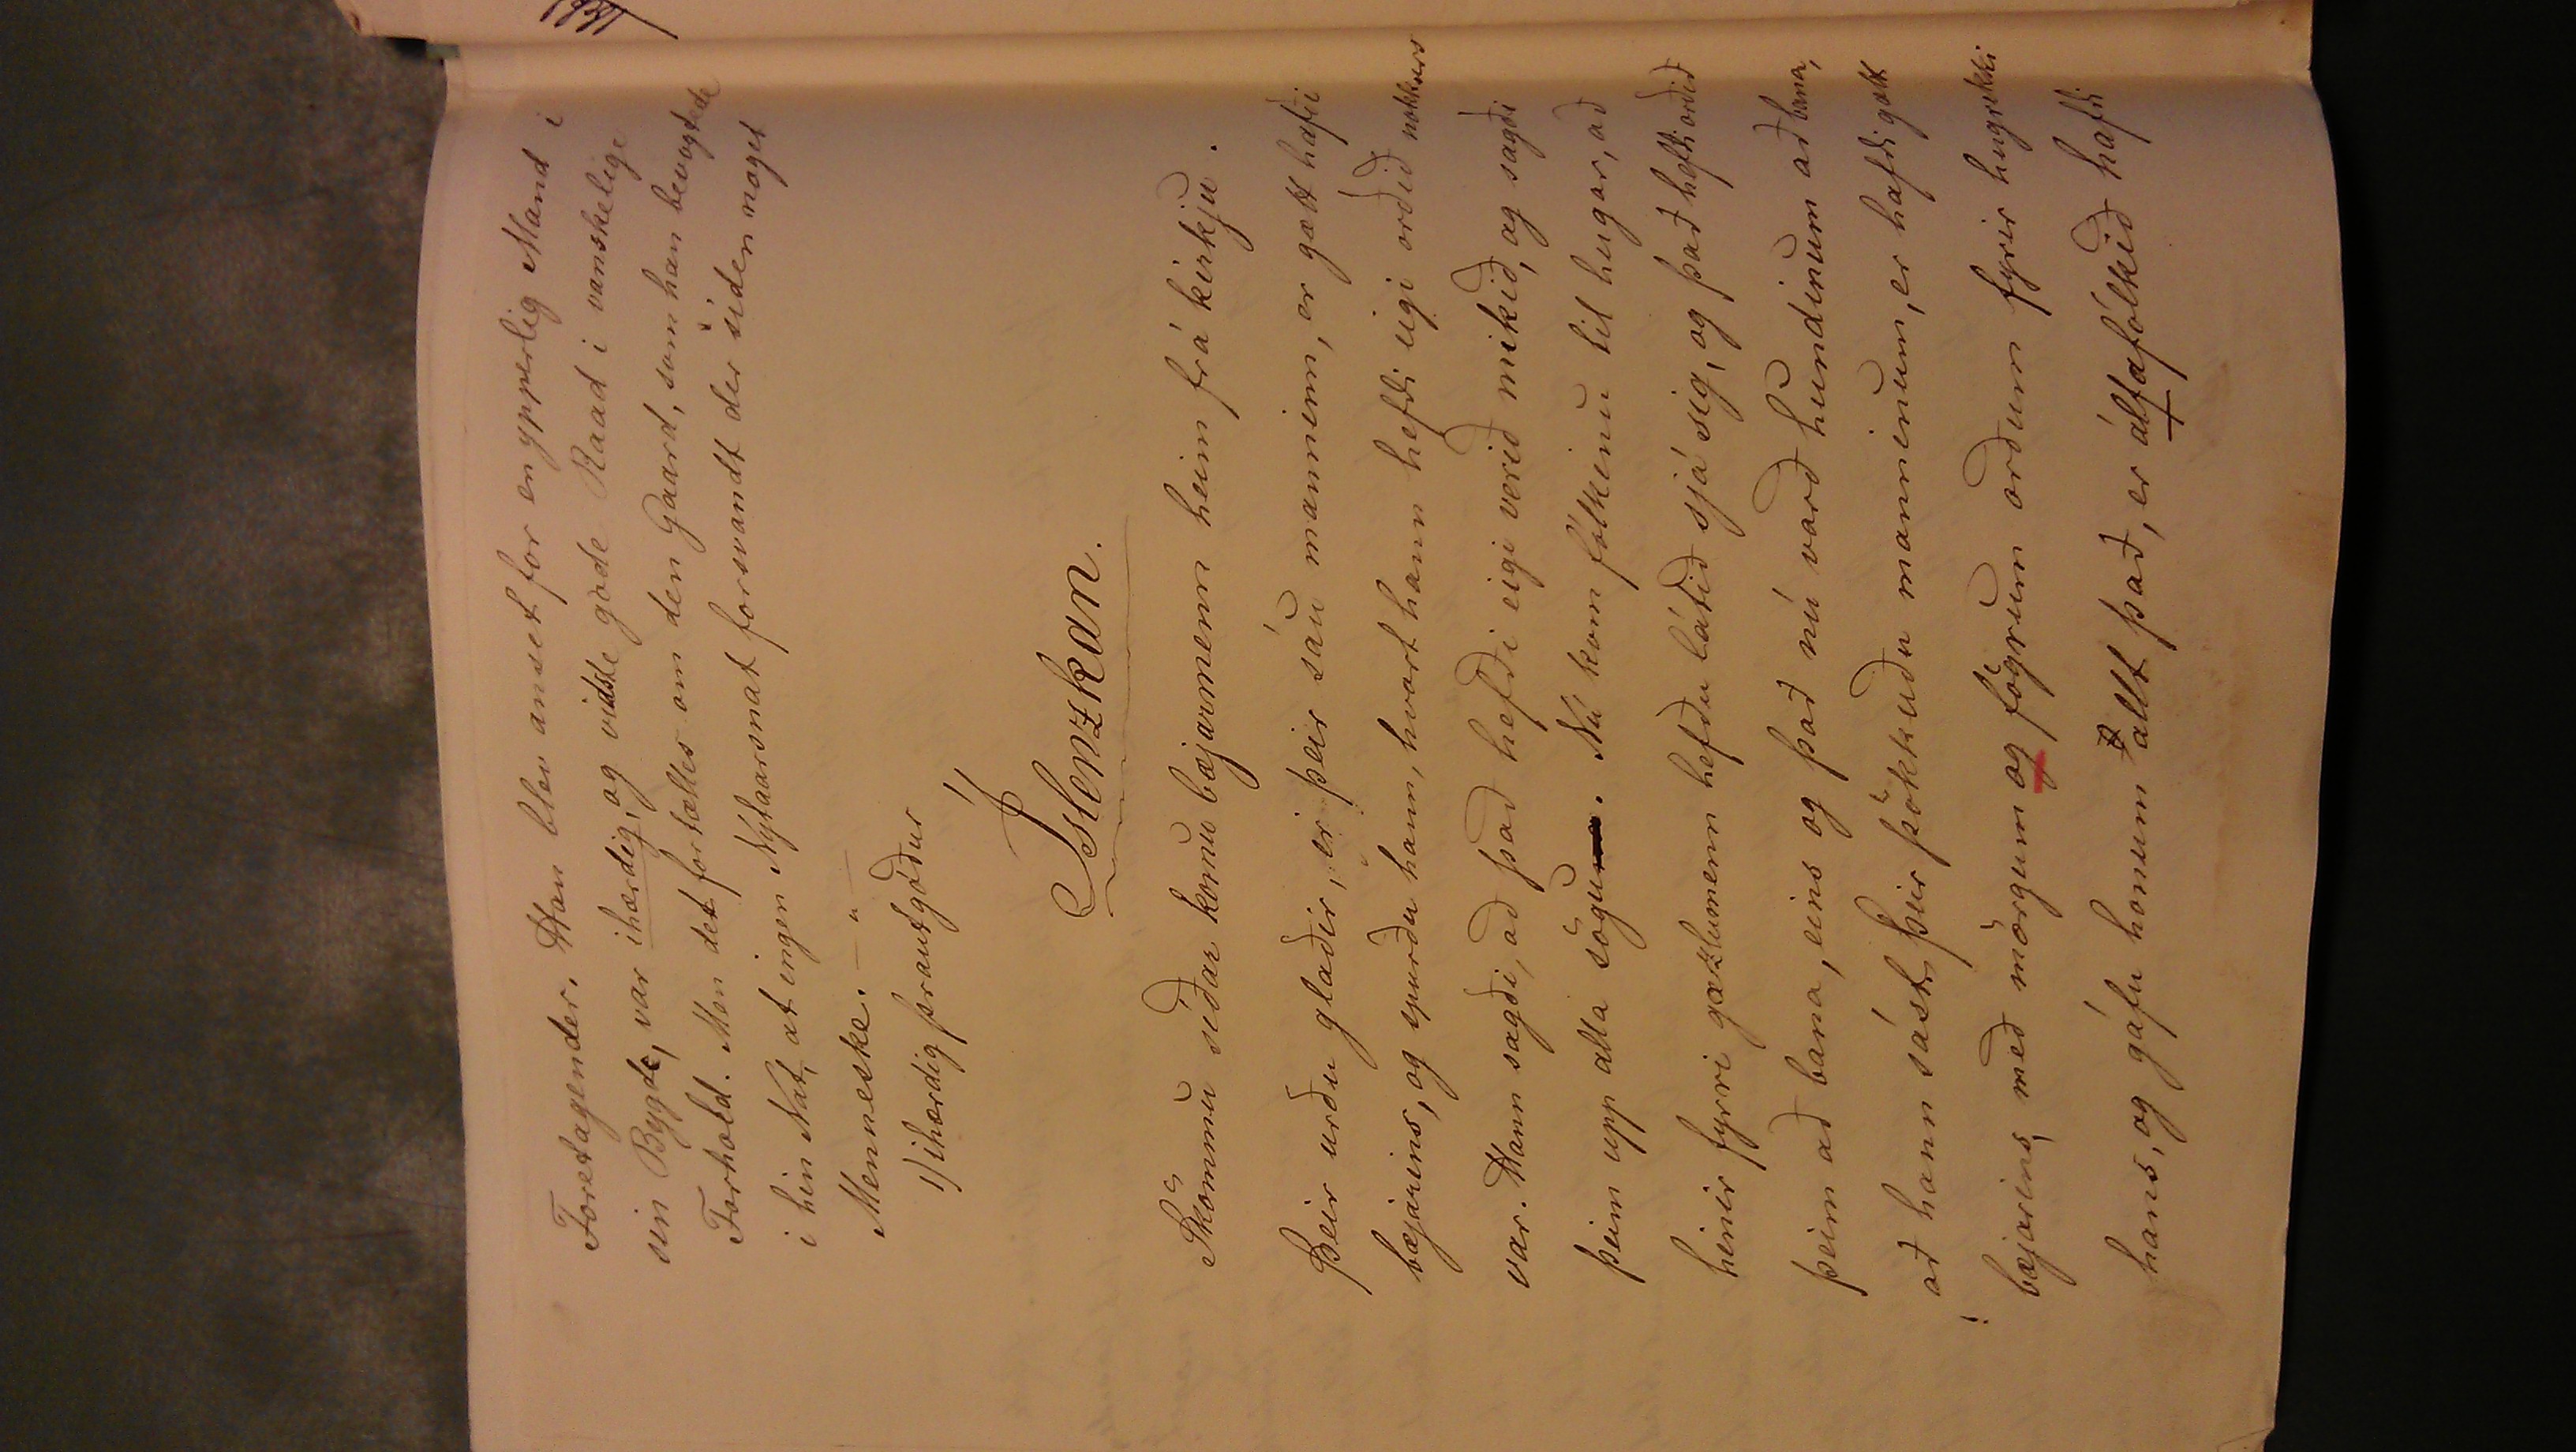 Foretagender. Han blev anset for en ypperlig Mand i
sin Bygde, var ihærdig, og vidste gode Raad i vanskelige
Forhold. Men det fortælles om den Gaard, som han bevogtede
i hin Nat, at ingen Nytaarsnat forsvandt der siden noget
Menneske. — " —
1) ihærdig þrautgóður
Íslenzkan.
Skömmu síðar komu bæjarmenn heim frá kirkju.
Þeir urðu glaðir, er þeir sáu manninn, er gætt hafði
bæjarins, og spurðu hann, hvort hann hefði eigi orðið nokkurs
var. Hann sagði, að það hefði eigi verið mikið, og sagði
þeim upp alla sögu. Nú kom fólkinu til hugar, að
hinir fyrri gæzlumenn hefðu látið sjá sig, og það hefði orðið
þeim að bana, eins og það nú varð hundinum að bana,
að hann sást. Þeir þökkuðu manninum, er hafði gætt
bæjarins, með mörgum og fögrum orðum fyrir hugrekki
hans, og gáfu honum allt það, er álfafólkið hafði